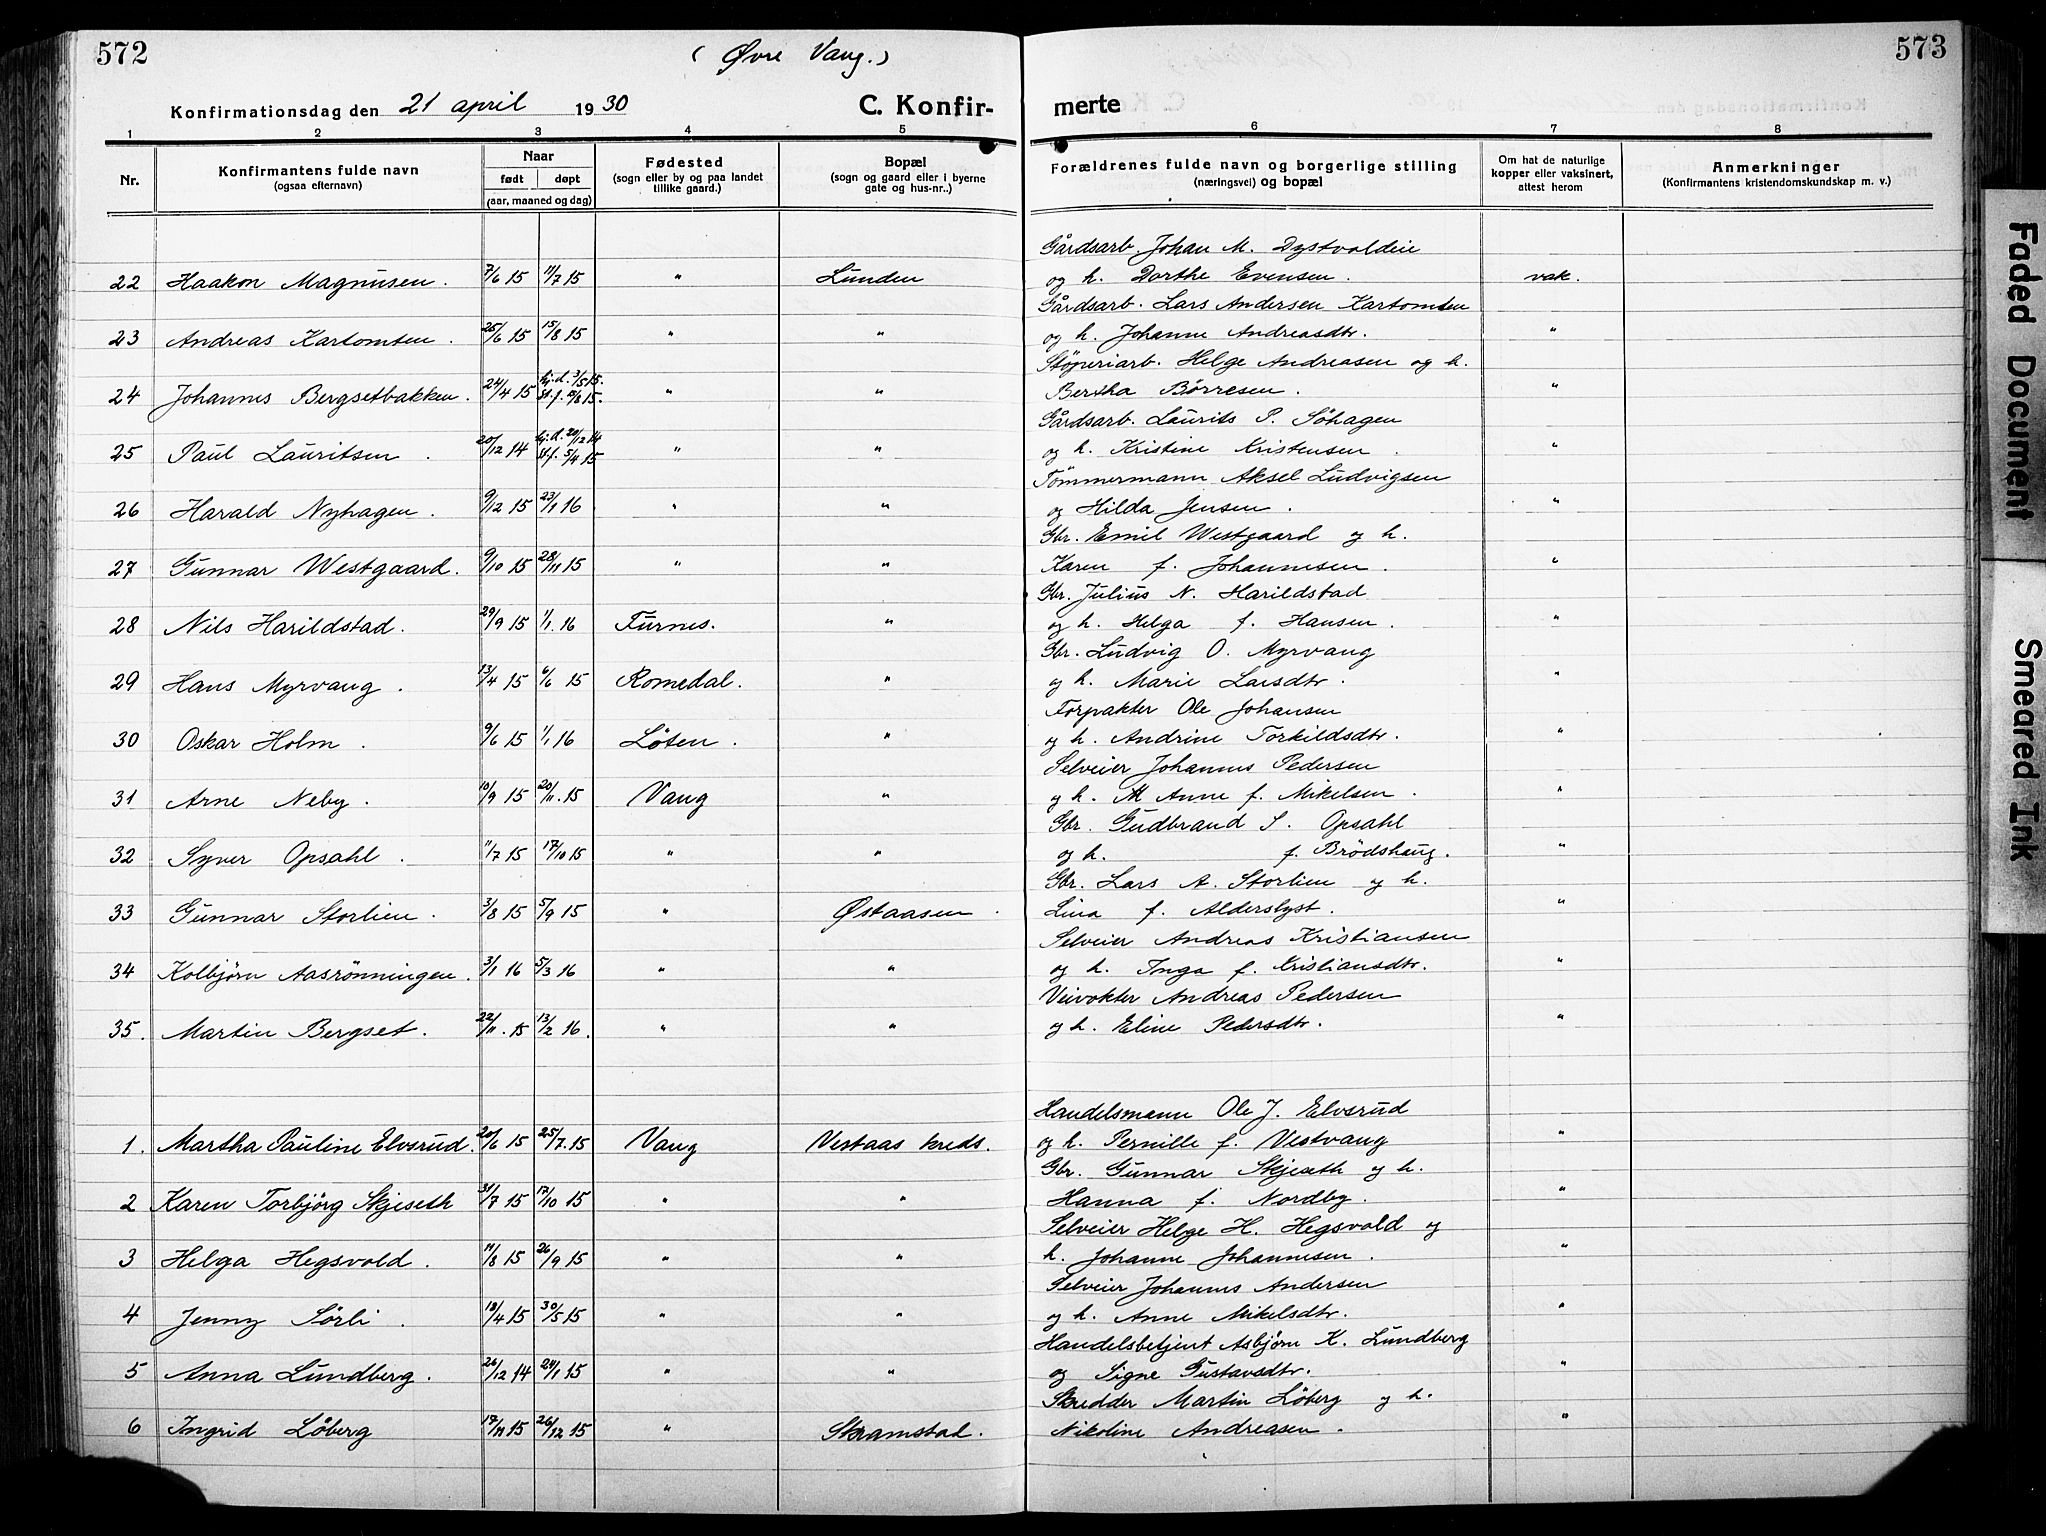 572
( Øvre Vang. )
573
Konfirmationsdag den 21 april 1930
C. Konfir-
merte
1 2 3 4 5 6 7 8
Nr.
Konfirmantens fulde navn
(ogsaa efternavn)
Naar
født døpt
(aar, maaned og dag)
Fødested
(sogn eller by og paa landet
tillike gaard.)
Bopæl
(sogn og gaard eller i byerne
gate og hus-nr..)
Forældrenes fulde navn og borgerlige stilling
(næringsvei) og bopæl
Om hat de naturlige
kopper eller vaksinert,
attest herom
Anmerkninger
(Konfirmantens kristendomskundskap m. v.)
Gårdsarb. Johan M. Dystvoldeie
22 Haakon Magnusen. 7/6 15 11/7 15 " Lunden og h. Dorthe Evensen. vak.
Gårdsarb. Lars Andersen Kartomten
23 Andreas Kartomten. 25/6 15 15/8 15 " " og h. Johanne Andreasdtr. "
Støperiarb. Helge Andreasen og h.
24 Johannes Bergsetbakken. 24/4 15 hj.d. 3/5 15. st.f. 15/8 15. " " Bertha Børresen. "
Gårdsarb. Laurits P. Söhagen
25 Paul Lauritsen. 20/12 14 hj.d. 20/12 14 st.f. 5/4 15 " " og h. Kristine Kristensen. "
Tömmermann Aksel Ludvigsen
26 Harald Nyhagen. 9/12 15 23/1 16 " " og Hilda Jensen. "
Gbr. Emil Westgaard og h.
27 Gunnar Westgaard. 9/10 15 28/11 15 " " Karen f. Johannesen. "
Gbr. Julius N. Harildstad
28 Nils Harildstad. 29/9 15 1/1. 16 Furnes. " og h. Helga f. Hansen. "
Gbr. Ludvig O. Myrvang
29 Hans Myrvang. 13/4 15 6/6 15 Romedal. " og h. Marie Larsdtr. "
Forpakter Ole Johansen
30 Oskar Holm. 9/6 15 1/1 16 Løten. " og h. Andrine Torkildsdtr. "
Selveier Johannes Pedersen
31 Arne Neby. 10/9 15 20/11. 15 Vang " og h. M Anne f. Mikelsen. "
Gbr. Gudbrand S. Opsahl
32 Syver Opsahl. 11/7 15 17/10 15 " " og h. f. Brödshaug. "
Gbr. Lars A. Storlien og h.
33 Gunnar Storlien. 3/8 15 5/9 15 " Østaasen. Lina f. Alderslyst. "
Selveier Andreas Kristiansen
34 Kolbjørn Aasrönningen. 3/1 16 5/3 16 " " og h. Inga f. Kristiansdtr. "
Veivokter Andreas Pedersen
35. Martin Bergset. 22/11. 15 13/2 16. " " og h. Eline Pedersdtr. "
Handelsmann Ole J. Elvsrud
1. Martha Pauline Elvsrud. 20/6 15 25/7. 15 Vang Vestaas kreds. og h. Pernille f. Vestvang "
Gbr. Gunnar Skjeseth og h.
2 Karen Torbjörg Skjeseth 31/7 15 17/10 15 " " Hanna f. Nordby. "
Selveier Helge H. Hegsvold og
3 Helga Hegsvold. 11/8 15 26/9 15 " " h. Johanne Johannesen. "
Selveier Johannes Andersen
4 Jenny Sörli. 18/4 15 30/5 15 " " og h. Anne Mikelsdtr. "
Handelsbetjent Asbjørn K. Lundberg
5 Anna Lundberg. 26/12 14 24/1 15 " " og Signe Gustavsdtr. "
Skredder Martin Löberg og h.
6 Ingrid Löberg 17/11 15 26/12 15 " Skramstad. Nikoline Andreasen. "
Faded Document
Smeared Ink